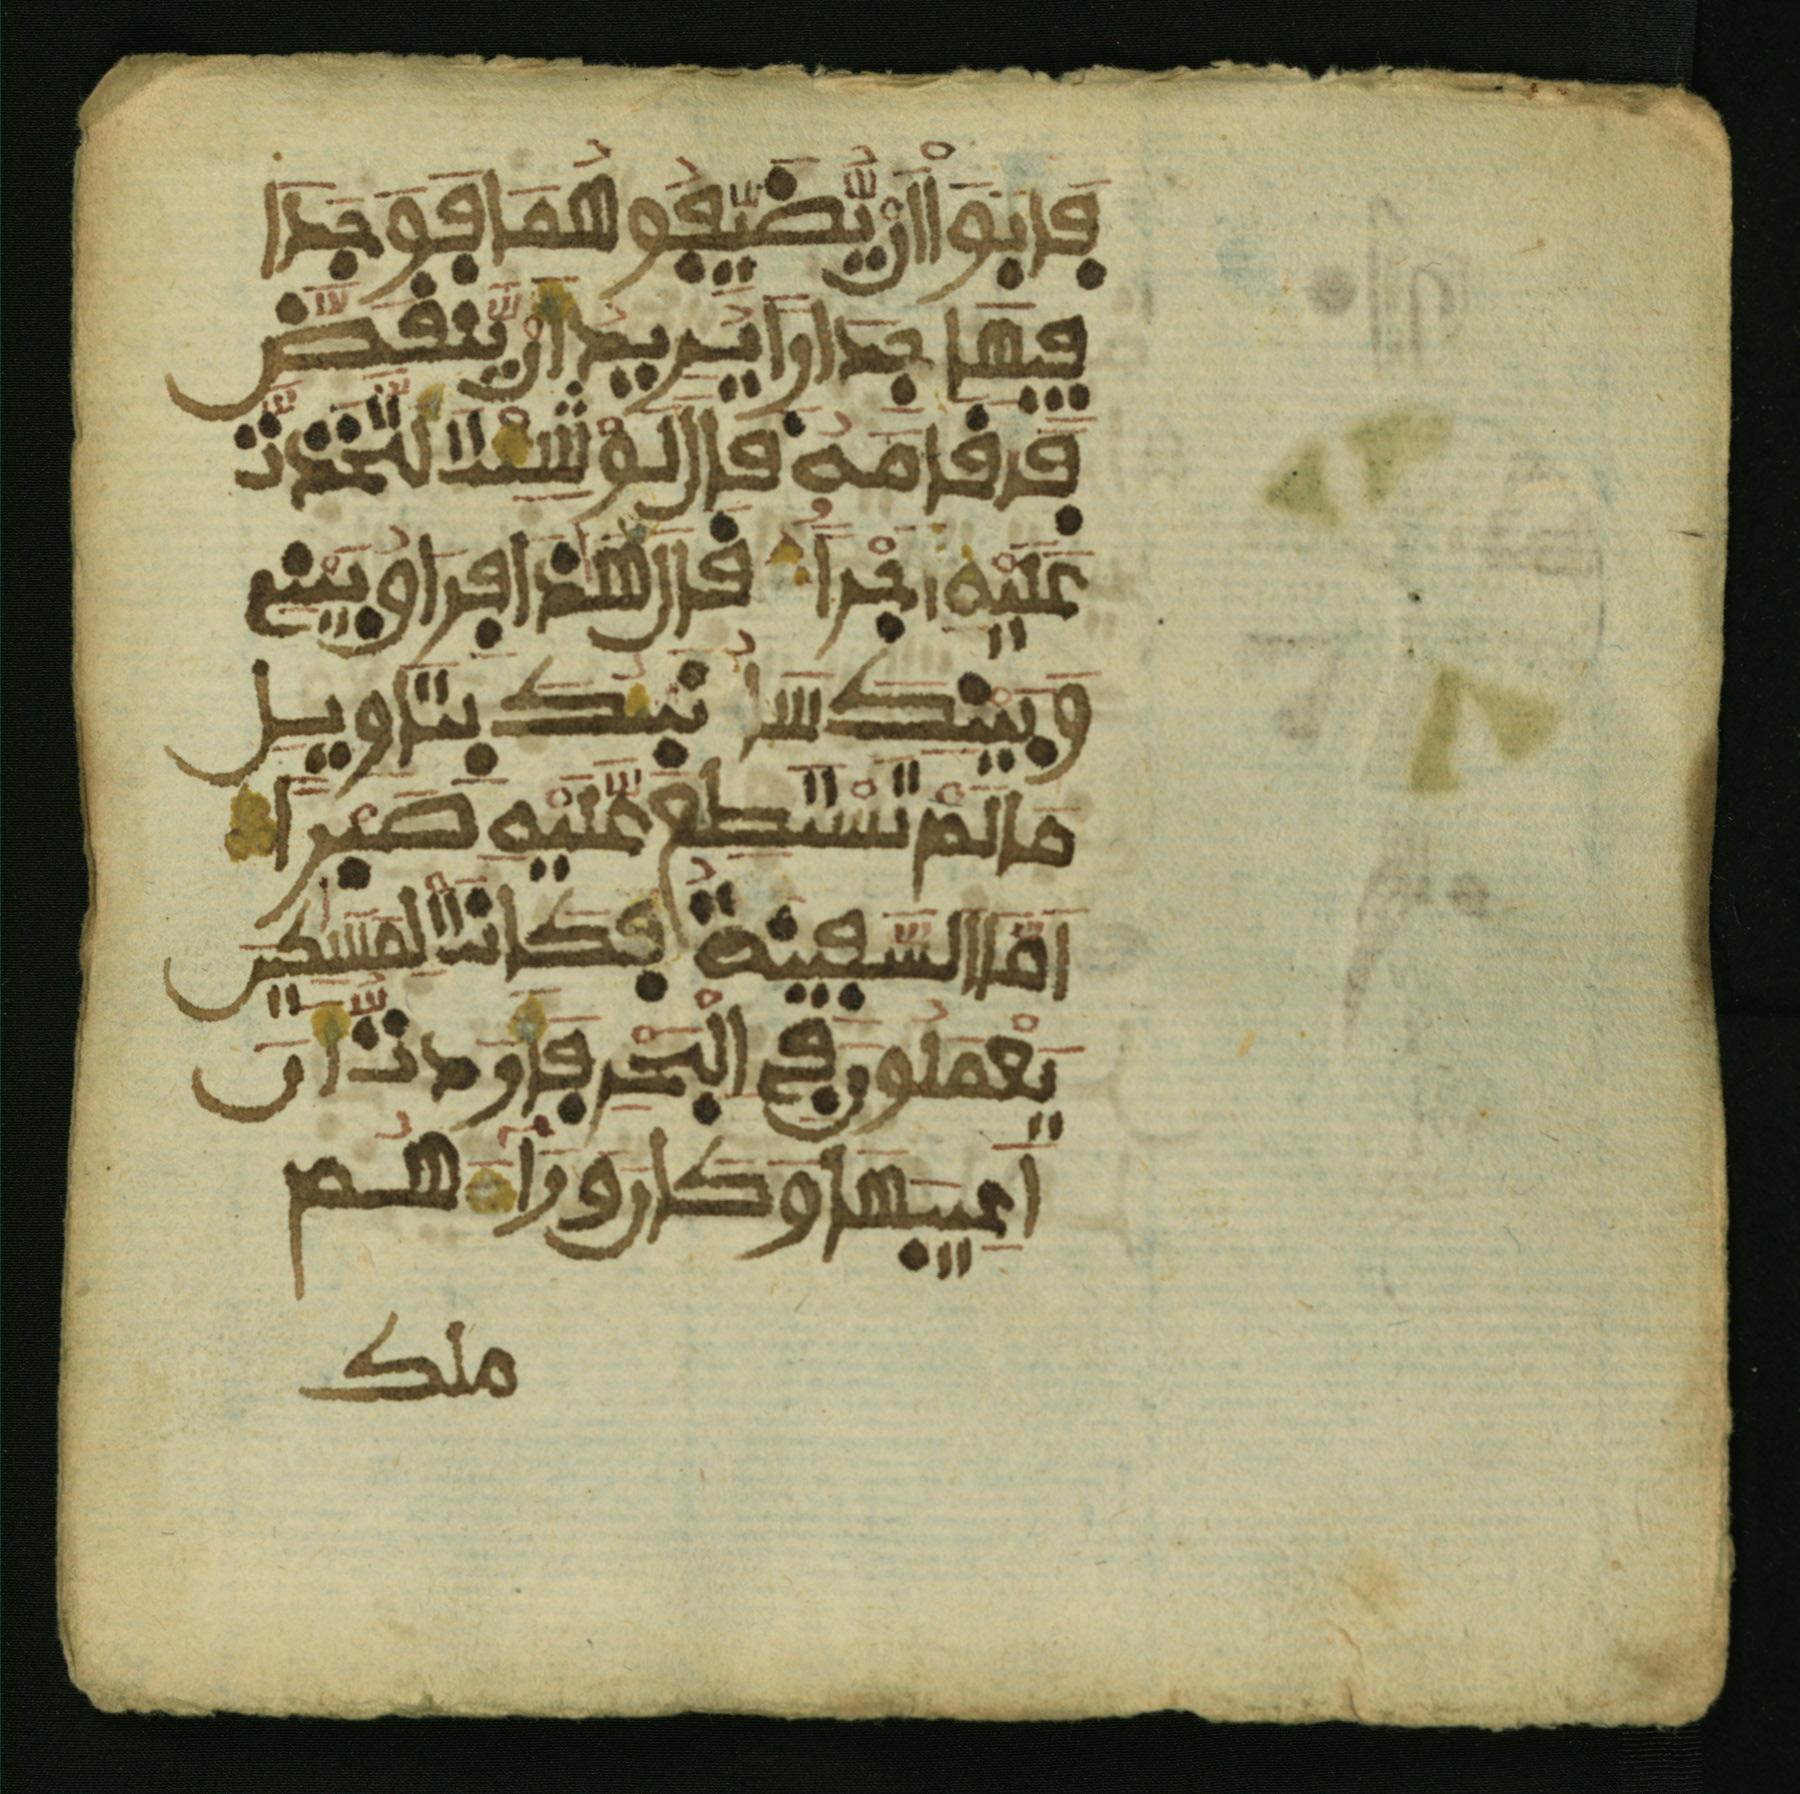 فَابَوَاْ اَنْ يُّضَيِّفُوهُمَا فَوَجَدَا
فِيهَا جِدَارًا يُرِيدُ أَنْ يَّنقَضَّ
فَأَقَامَهُ قَالَ لَوْ شِئْتَ لَتَّخَذتَّ
عَلَيْهِ أَجْرًا قَالَ هَذَا فِرَاقُ بَيْنِي
وَبَيْنِكَ سَأُنَبِّئُكَ بِتَأْوِيلِ
مَا لَمْ تَسْتَطِع عَّلَيْهِ صَبْرًا
اَمَّا السَّفِينَةُ فَكَانَتْ لِمَسَكِينَ
يَعْمَلُونَ فِي الْبَحْرِ فَأَرَدتُّ أَنَ
اَعِيبَهَا وَكَانَ وَرَآءَهُم
ملك